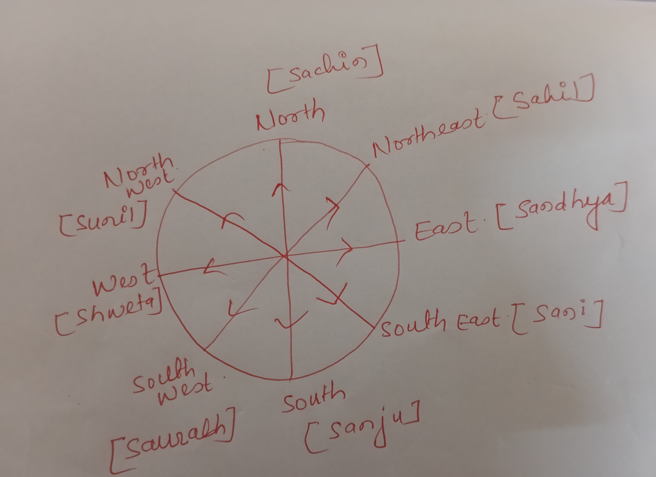 [Sachin]
North
Northeast [Sahil]
North
West
[Sunil]
East. [Sandhya]
West
[Shweta]
South East [Sani]
South
West.
[Saurabh]
South
[Sanju]